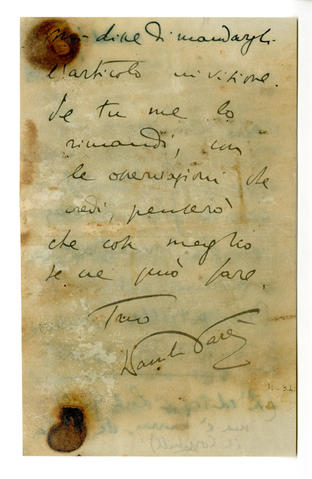 mi dice di mandargli
l'articolo in visione.
Se tu me lo
rimandi, con
le osservazioni che
credi, penserò
che cosa meglio
se ne può fare.
Tuo